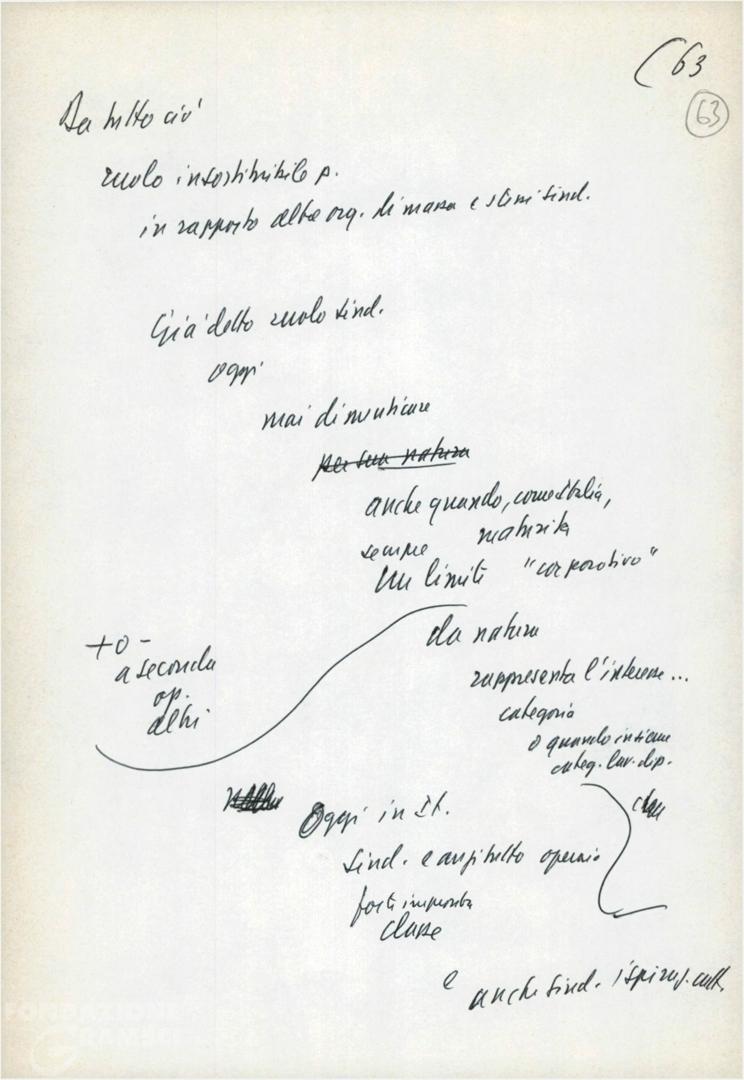 (63
63
Da tutto ciò
ruolo insostituibile p.
in rapporto altre org. di massa e stessi sind.
Già detto ruolo sind.
oggi
mai dimenticare
per sua natura
anche quando, come Italia,
sempre maturità
un limite "corporativo"
da natura
+ o -
a seconda
op.
altri
rappresenta l'interesse...
categoria
o quando insieme
categ. lav. dip.
Oggi in It.
Sind. è anzitutto operaio
forte impronta
classe
e anche sind. ispiraz. catt.
FONDAZIONE
GRAMSCI